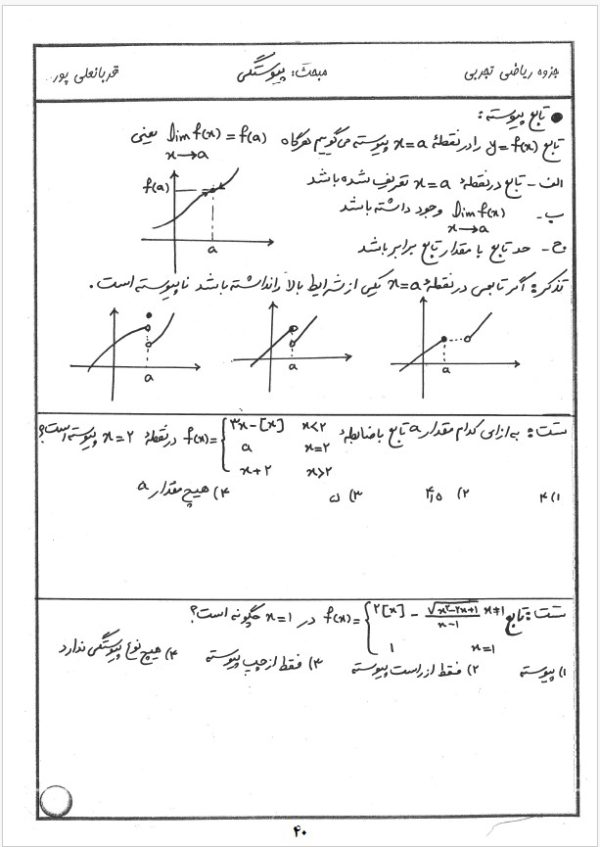 جزوه ریاضی تجربی    مبحث: پیوستگی    قربانعلی پور
● تابع پیوسته:
تابع y=f(x) را در نقطهٔ x=a پیوسته می‌گوییم هرگاه lim f(x) = f(a) یعنی
x→a
الف- تابع در نقطهٔ x=a تعریف شده باشد
ب- lim f(x) وجود داشته باشد
x→a
ج- حد تابع با مقدار تابع برابر باشد
f(a)
a
تذکر: اگر تابعی در نقطهٔ x=a یکی از شرایط بالا را نداشته باشد ناپیوسته است.
a    a    a
تست: به ازای کدام مقدار a تابع با ضابطهٔ f(x)= { ۳x-[x]  x<۲ در نقطهٔ x=۲ پیوسته است؟
a  x=۲
x+۲  x>۲
۱) ۴    ۲) ۴,۵    ۳) ۵    ۴) هیچ مقدار a
تست: تابع f(x)= { ۲[x] - √(x²-۲x+۱) / (x-۱)  x≠۱ در x=۱ چگونه است؟
۱  x=۱
۱) پیوسته    ۲) فقط از راست پیوسته    ۳) فقط از چپ پیوسته    ۴) هیچ نوع پیوستگی ندارد
۴۰